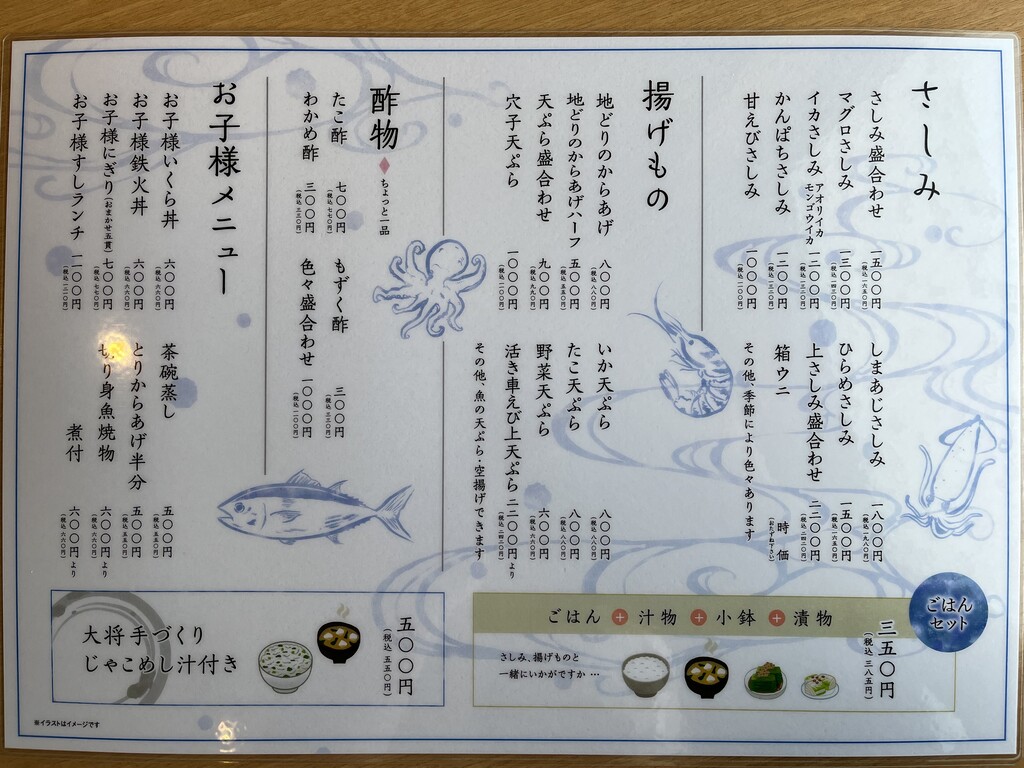 さしみ
さしみ盛合わせ 一五〇〇円
(税込 一六五〇円)
マグロさしみ 一三〇〇円
(税込 一四三〇円)
イカさしみ アオリイカ モンゴウイカ 一二〇〇円
(税込 一三二〇円)
かんぱちさしみ 一二〇〇円
(税込 一三二〇円)
甘えびさしみ 一〇〇〇円
(税込 一一〇〇円)
しまあじさしみ 一八〇〇円
(税込 一九八〇円)
ひらめさしみ 一五〇〇円
(税込 一六五〇円)
上さしみ盛合わせ 二二〇〇円
(税込 二四二〇円)
箱ウニ 時価
(おたずね下さい)
その他、季節により色々あります
揚げもの
地どりのからあげ 八〇〇円
(税込 八八〇円)
地どりのからあげハーフ 五〇〇円
(税込 五五〇円)
天ぷら盛合わせ 九〇〇円
(税込 九九〇円)
穴子天ぷら 一〇〇〇円
(税込 一一〇〇円)
いか天ぷら 八〇〇円
(税込 八八〇円)
たこ天ぷら 八〇〇円
(税込 八八〇円)
野菜天ぷら 六〇〇円
(税込 六六〇円)
活き車えび上天ぷら 二二〇〇円より
(税込 二四二〇円)
その他、魚の天ぷら・空揚げできます
酢物◆ちょっと一品
たこ酢 七〇〇円
(税込 七七〇円)
わかめ酢 三〇〇円
(税込 三三〇円)
もずく酢 三〇〇円
(税込 三三〇円)
色々盛合わせ 一〇〇〇円
(税込 一一〇〇円)
お子様メニュー
お子様いくら丼 六〇〇円
(税込 六六〇円)
お子様鉄火丼 六〇〇円
(税込 六六〇円)
お子様にぎり(おまかせ五貫) 七〇〇円
(税込 七七〇円)
お子様すしランチ 一一〇〇円
(税込 一二一〇円)
茶碗蒸し 五〇〇円
(税込 五五〇円)
とりからあげ半分 五〇〇円
(税込 五五〇円)
切り身魚焼物 六〇〇円より
(税込 六六〇円)
煮付 六〇〇円より
(税込 六六〇円)
ごはんセット
ごはん+汁物+小鉢+漬物
さしみ、揚げものと
一緒にいかがですか…
三五〇円
(税込 三八五円)
大将手づくり
じゃこめし汁付き
五〇〇円
(税込 五五〇円)
※イラストはイメージです